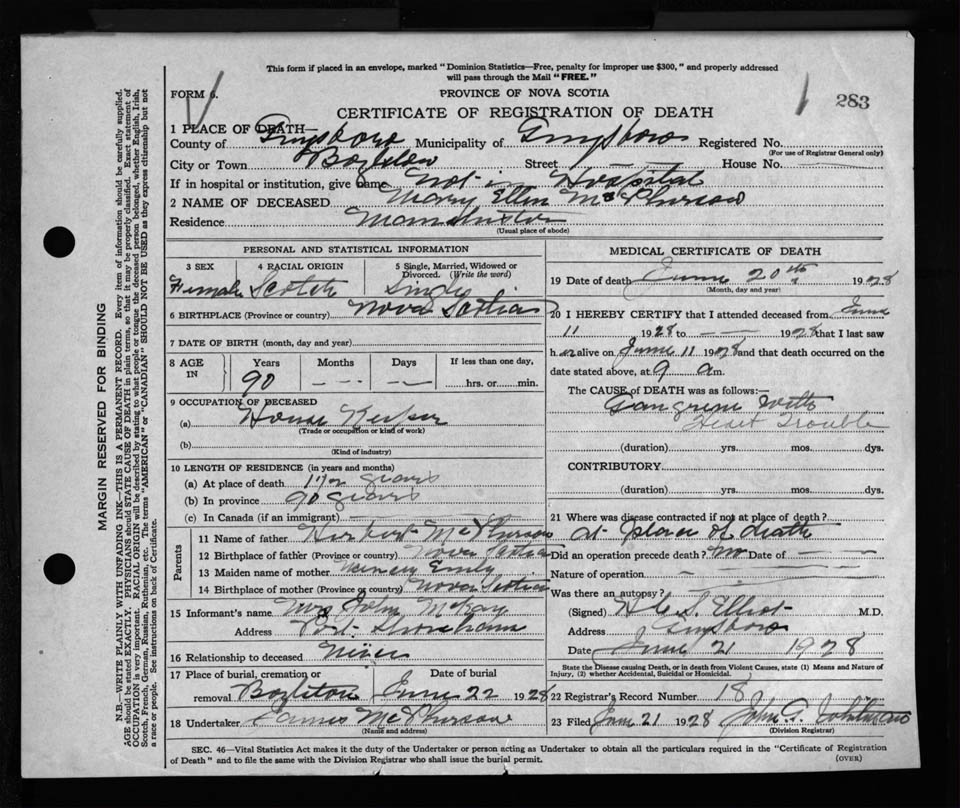 This form if placed in an envelope, marked "Dominion Statistics—Free, penalty for improper use $300," and properly addressed
will pass through the Mail "FREE."
FORM 6.
PROVINCE OF NOVA SCOTIA
283
CERTIFICATE OF REGISTRATION OF DEATH
1 PLACE OF DEATH—
County of Guysboro Municipality of Guysboro Registered No.
(For use of Registrar General only)
City or Town Boylston Street — House No. —
If in hospital or institution, give name Not in Hospital
2 NAME OF DECEASED Mary Ellen McPherson
Residence Manchester
(Usual place of abode)
PERSONAL AND STATISTICAL INFORMATION
3 SEX 4 RACIAL ORIGIN 5 Single, Married, Widowed or
Divorced. (Write the word)
Female Scotch Single
6 BIRTHPLACE (Province or country) Nova Scotia
7 DATE OF BIRTH (month, day and year)
8 AGE IN Years Months Days If less than one day,
90 — — hrs. or min.
9 OCCUPATION OF DECEASED
(a) House Keeper
(Trade or occupation or kind of work)
(b)
(Kind of industry)
10 LENGTH OF RESIDENCE (in years and months)
(a) At place of death 1 1/2 years
(b) In province 90 years
(c) In Canada (if an immigrant)
Parents
11 Name of father Herbert McPherson
12 Birthplace of father (Province or country) Nova Scotia
13 Maiden name of mother Emily
14 Birthplace of mother (Province or country) Nova Scotia
15 Informant's name Mrs John McKay
Address Port Shoreham
16 Relationship to deceased Niece
17 Place of burial, cremation or Date of burial
removal Boylston June 22 1928
18 Undertaker James McPherson
(Name and address)
MEDICAL CERTIFICATE OF DEATH
19 Date of death June 20th 1928
(Month, day and year)
20 I HEREBY CERTIFY that I attended deceased from June
11 1928 to — — 1928 that I last saw
h er alive on June 11 1928 and that death occurred on the
date stated above, at 9 a m.
The CAUSE of DEATH was as follows:—
Gangrene with
Heart Trouble
(duration) yrs. mos. dys.
CONTRIBUTORY
(duration) yrs. mos. dys.
21 Where was disease contracted if not at place of death?
At place of death
Did an operation precede death? No Date of — —
Nature of operation — —
Was there an autopsy?
(Signed) H C S Elliot M.D.
Address Guysboro
Date June 21 1928
State the Disease causing Death, or in death from Violent Causes, state (1) Means and Nature of
Injury, (2) whether Accidental, Suicidal or Homicidal.
22 Registrar's Record Number 18
23 Filed June 21 1928 John G. Whitman
(Division Registrar)
SEC. 46—Vital Statistics Act makes it the duty of the Undertaker or person acting as Undertaker to obtain all the particulars required in the "Certificate of Registration
of Death" and to file the same with the Division Registrar who shall issue the burial permit.
(OVER)
MARGIN RESERVED FOR BINDING
N.B.—WRITE PLAINLY WITH UNFADING INK—THIS IS A PERMANENT RECORD. Every item of information should be carefully supplied.
AGE should be stated EXACTLY. PHYSICIANS should STATE CAUSE OF DEATH in plain terms, so that it may be properly classified. Exact statement of
OCCUPATION is very important. RACIAL ORIGIN will be described by stating to what people or tongue the deceased person belonged, whether English, Irish,
Scotch, French, German, Russian, Ruthenian, etc. The terms "AMERICAN" or "CANADIAN" SHOULD NOT BE USED as they express citizenship but not
a race or people. See instructions on back of Certificate.